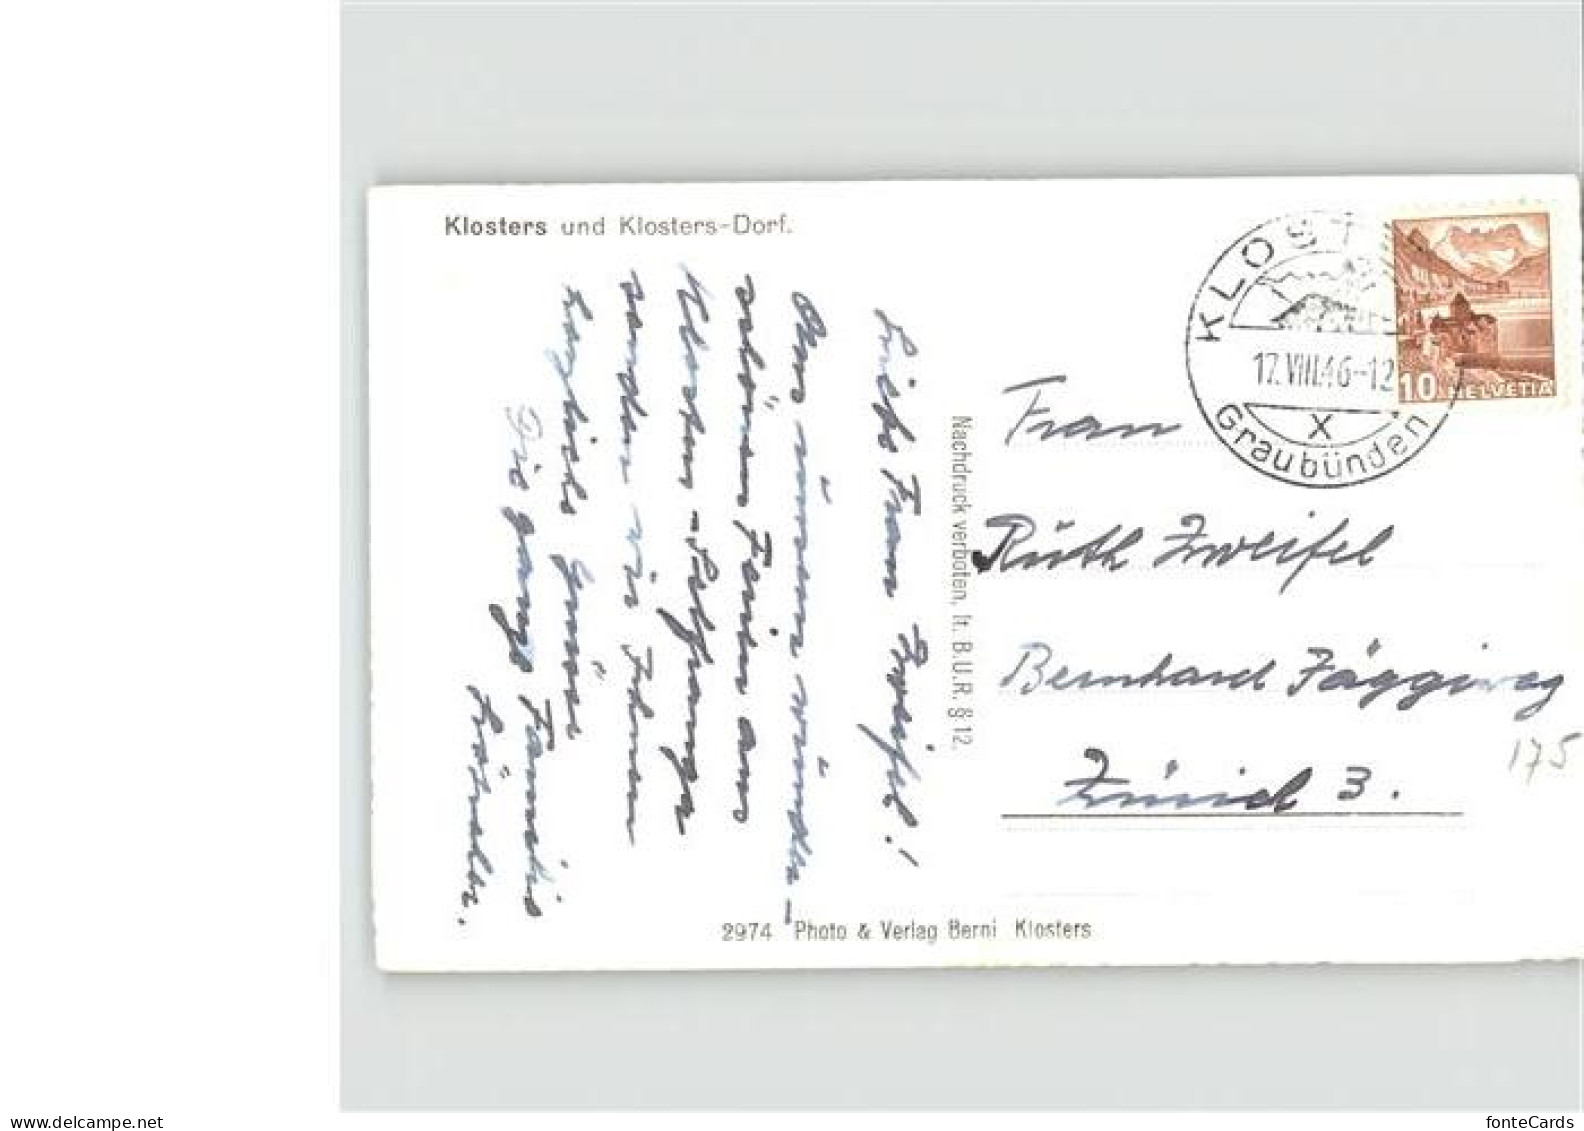 Klosters und Klosters-Dorf.
Liebe Frau Zweifel!
Aus unsern wunder-
schönen Ferien aus
Klosters-Selfranga
senden wir Ihnen
herzliche Grüsse
Die ganze Familie
Nachdruck verboten, lt. B.U.R. § 12.
KLOST
17.VIII.46-12
X
Graubünden
10 HELVETIA
Frau
Ruth Zweifel
Bernhard Jäggiweg
175
Zürich 3.
2974 Photo & Verlag Berni Klosters
www.delcampe.net
fonteCards